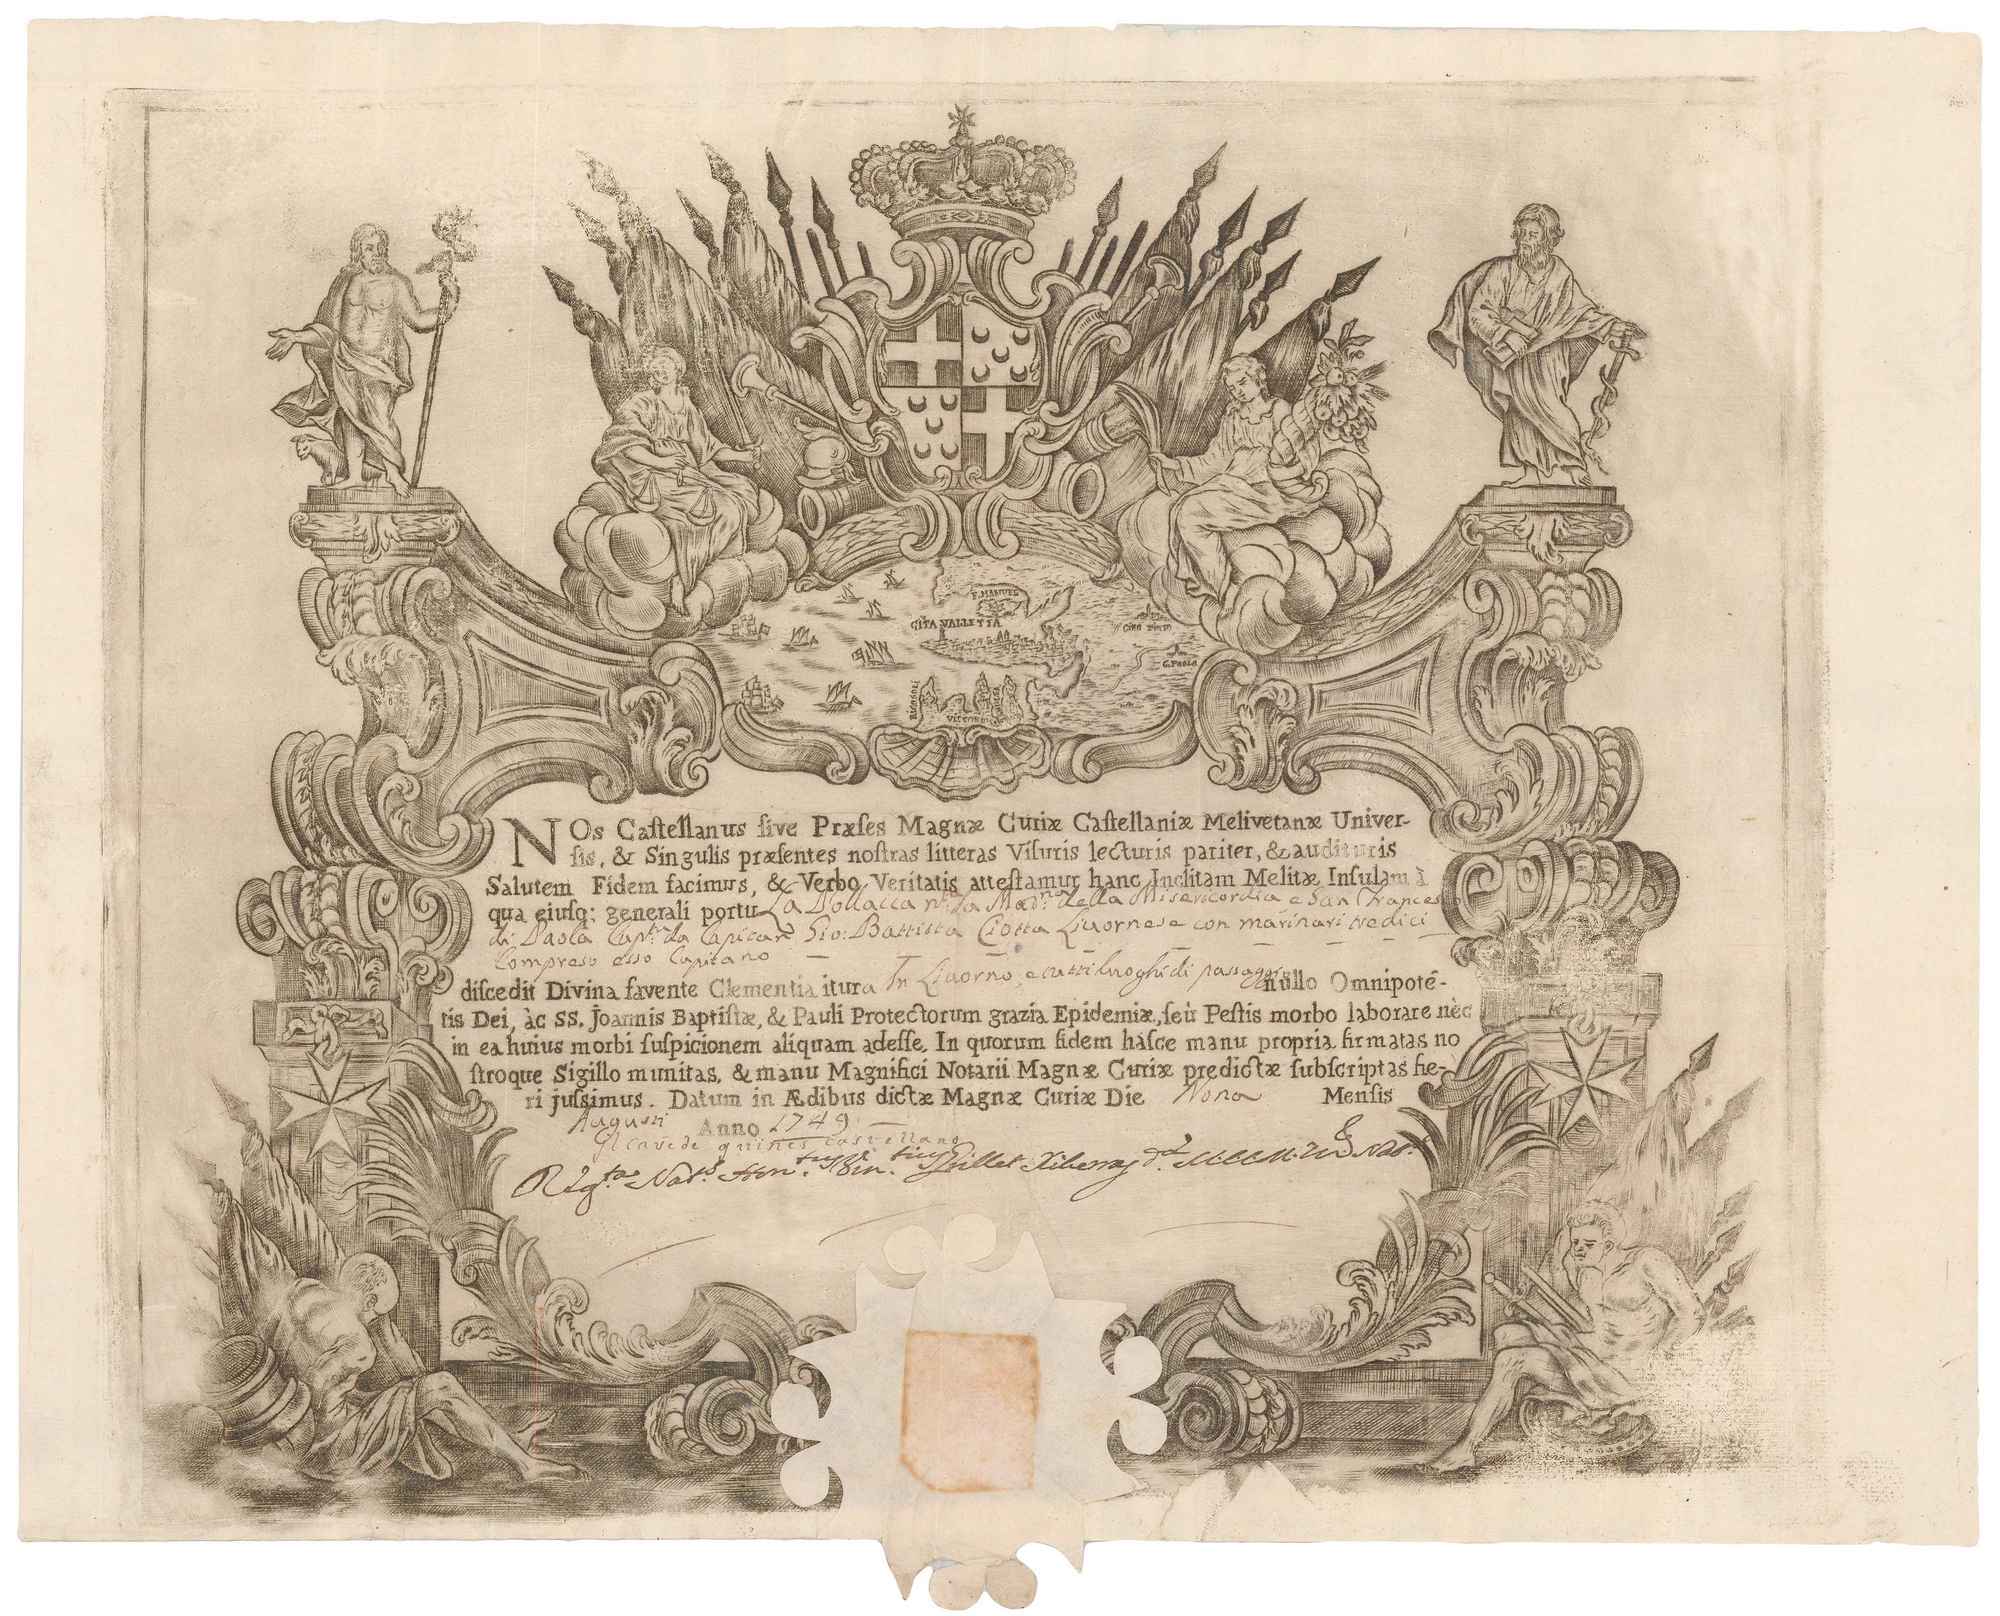 F. MANUEL
CITA VALLETTA
G. PAOLA
NOs Castellanus sive Præses Magnæ Curiæ Castellaniæ Melivetanæ Univer-
sis, & Singulis præsentes nostras litteras Visuris lecturis pariter, & audituris
Salutem Fidem facimus, & Verbo Veritatis attestamur hanc Inclitam Melitæ Insulam à
qua ejusq; generali portu La Pollacca n.ta la Mad.na della Misericordia e San Frances
di Paola Cap.ta da Capitan Gio: Battista Ciotta Livornese con marinari tredici
Compreso esso Capitano
discedit Divina favente Clementia itura In Livorno, e tutti luoghi di passaggio nullo Omnipotē-
tis Dei, àc SS. Joannis Baptistæ, & Pauli Protectorum grazia Epidemiæ, seù Pestis morbo laborare nèc
in ea huius morbi suspicionem aliquam adesse. In quorum fidem hàsce manu propria firmatas no
stroque Sigillo munitas, & manu Magnifici Notarii Magnæ Curiæ predictæ subscriptas fie-
ri jussimus. Datum in Ædibus dictæ Magnæ Curiæ Die Nona Mensis
Augusti Anno 1749
castellano